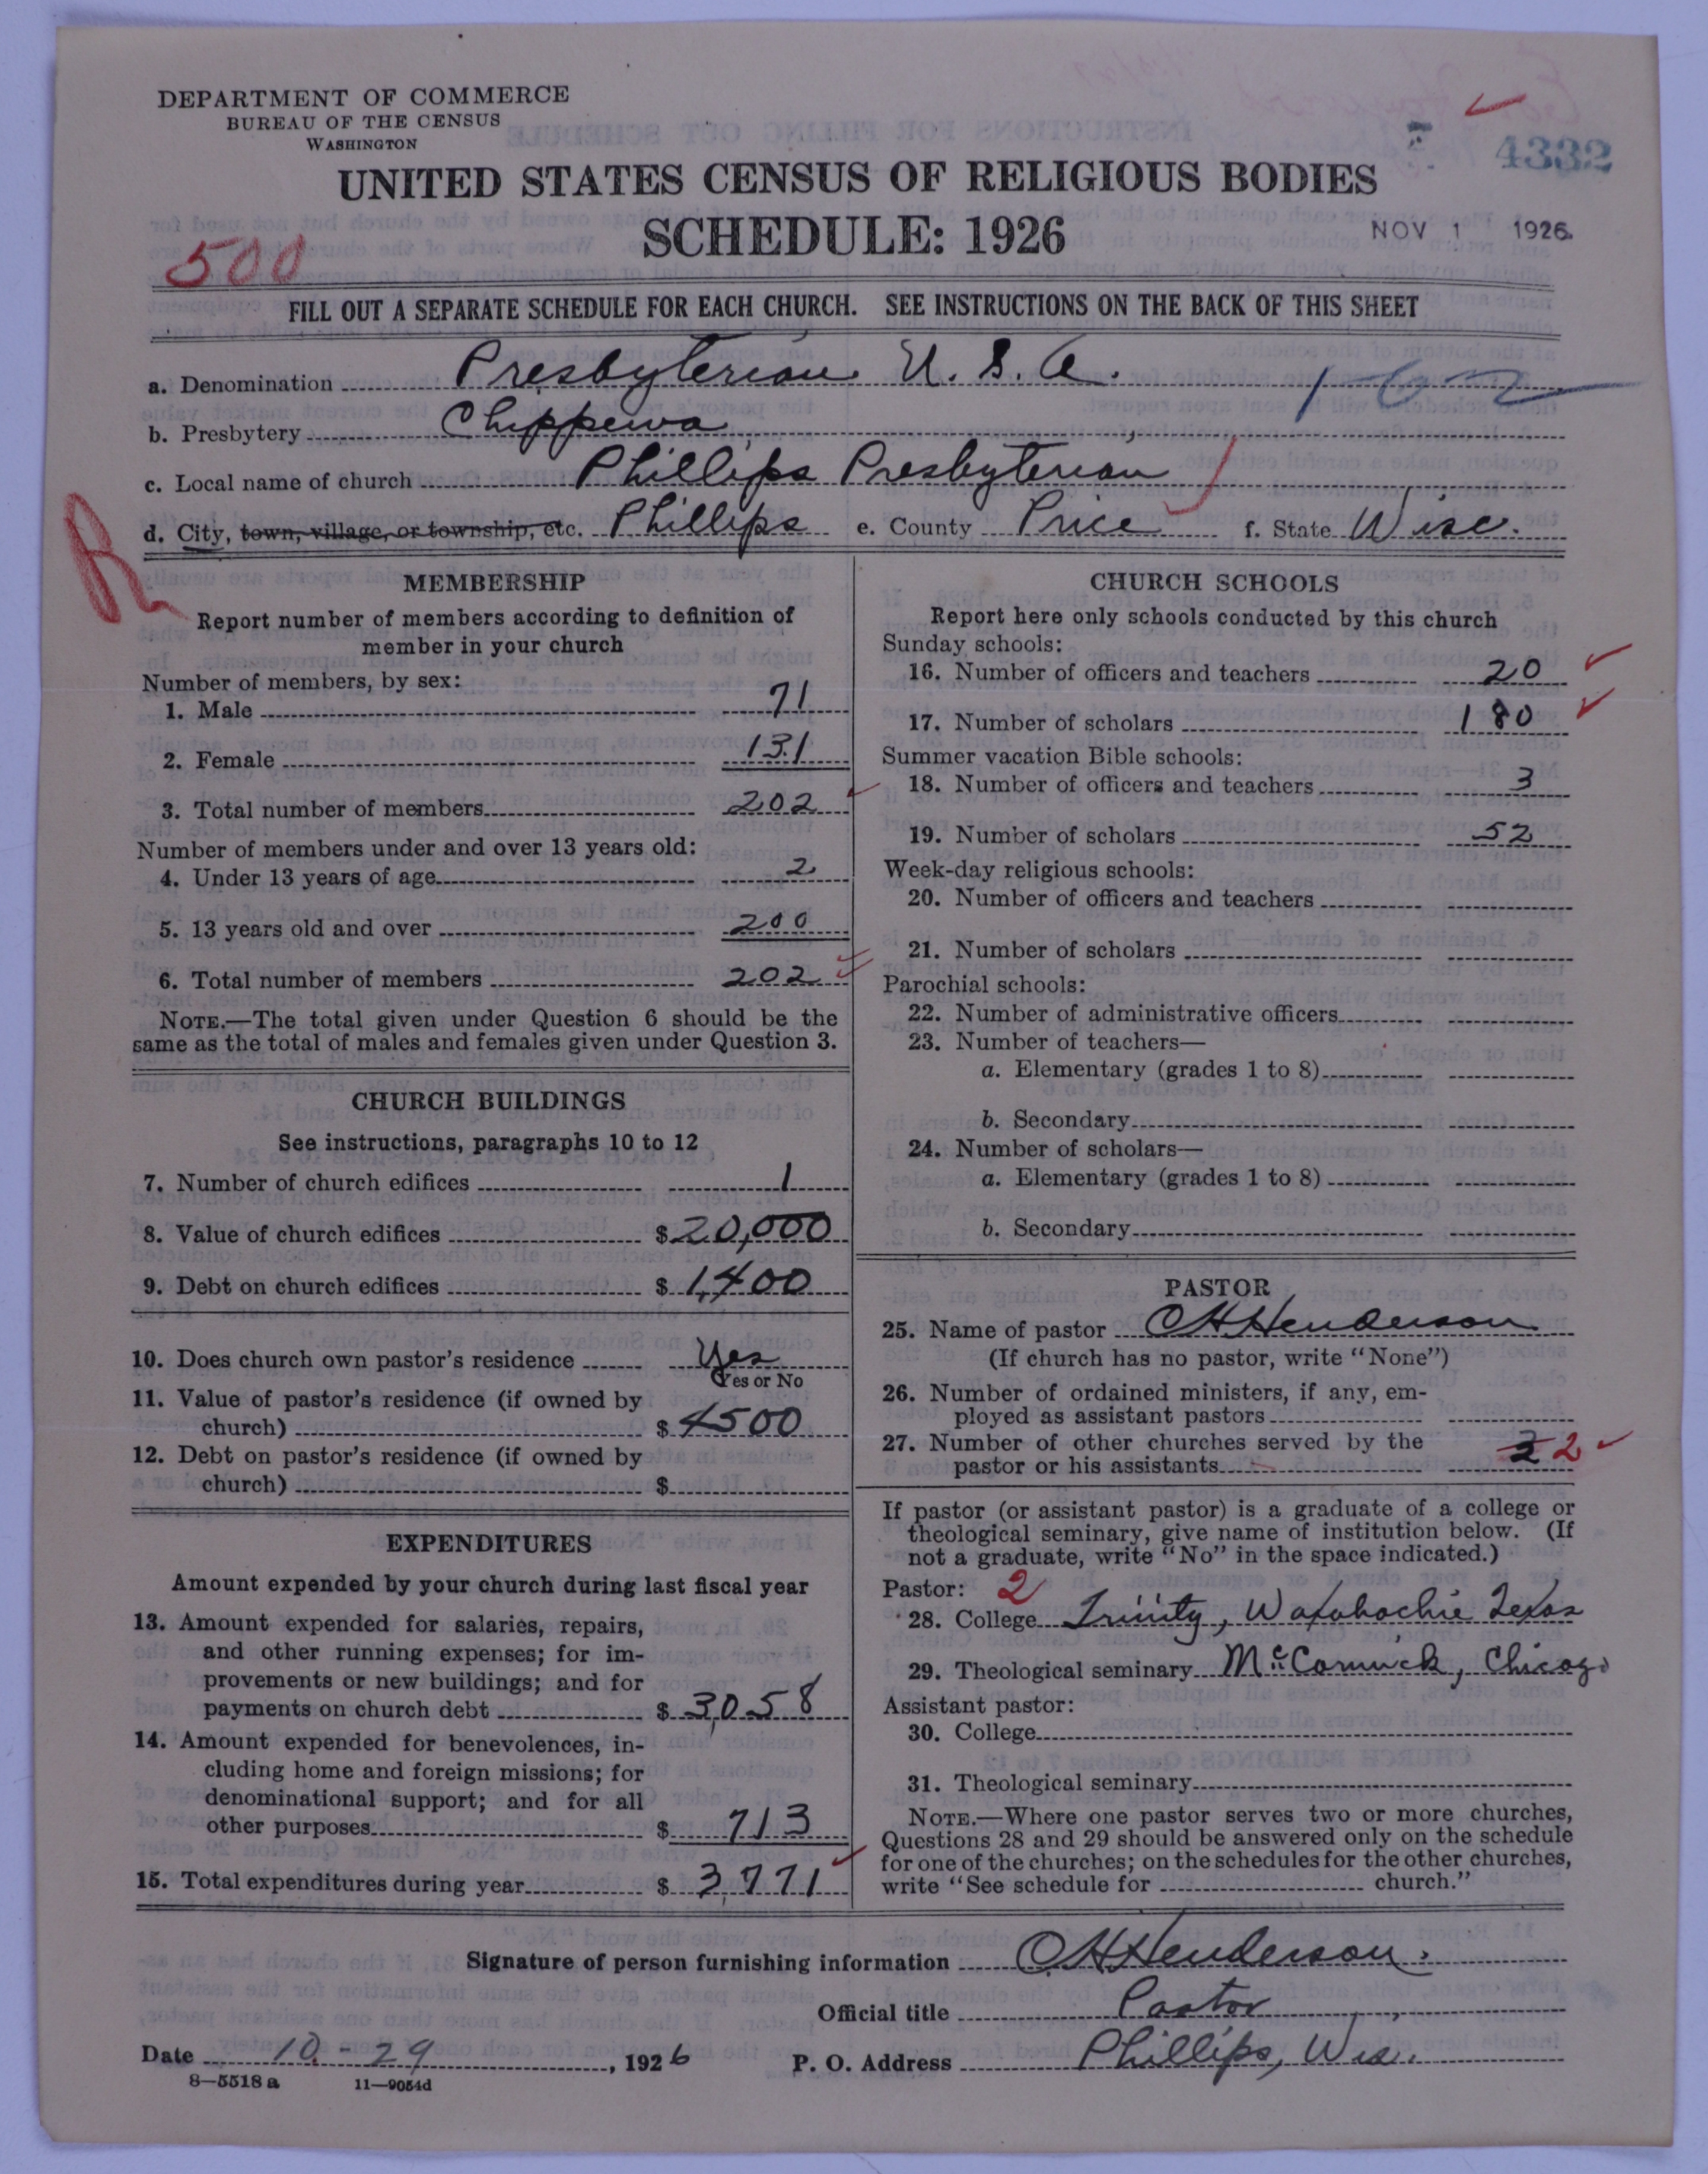 DEPARTMENT OF COMMERCE
BUREAU OF THE CENSUS
WASHINGTON
4332
UNITED STATES CENSUS OF RELIGIOUS BODIES
SCHEDULE: 1926
NOV 1 1926
500
FILL OUT A SEPARATE SCHEDULE FOR EACH CHURCH. SEE INSTRUCTIONS ON THE BACK OF THIS SHEET
a. Denomination Presbyterian U. S. A. 1-62
b. Presbytery Chippewa
c. Local name of church Phillips Presbyterian
d. City, town, village, or township, etc. Phillips e. County Price f. State Wisc.
MEMBERSHIP
Report number of members according to definition of
member in your church
Number of members, by sex:
1. Male 71
2. Female 131
3. Total number of members 202
Number of members under and over 13 years old:
4. Under 13 years of age 2
5. 13 years old and over 200
6. Total number of members 202
NOTE.—The total given under Question 6 should be the
same as the total of males and females given under Question 3.
CHURCH BUILDINGS
See instructions, paragraphs 10 to 12
7. Number of church edifices 1
8. Value of church edifices $20,000
9. Debt on church edifices $1,400
10. Does church own pastor's residence Yes
Yes or No
11. Value of pastor's residence (if owned by
church) $4500
12. Debt on pastor's residence (if owned by
church) $
EXPENDITURES
Amount expended by your church during last fiscal year
13. Amount expended for salaries, repairs,
and other running expenses; for im-
provements or new buildings; and for
payments on church debt $3,058
14. Amount expended for benevolences, in-
cluding home and foreign missions; for
denominational support; and for all
other purposes $713
15. Total expenditures during year $3,771
CHURCH SCHOOLS
Report here only schools conducted by this church
Sunday schools:
16. Number of officers and teachers 20
17. Number of scholars 180
Summer vacation Bible schools:
18. Number of officers and teachers 3
19. Number of scholars 52
Week-day religious schools:
20. Number of officers and teachers
21. Number of scholars
Parochial schools:
22. Number of administrative officers
23. Number of teachers—
a. Elementary (grades 1 to 8)
b. Secondary
24. Number of scholars—
a. Elementary (grades 1 to 8)
b. Secondary
PASTOR
25. Name of pastor O H Henderson
(If church has no pastor, write "None")
26. Number of ordained ministers, if any, em-
ployed as assistant pastors
27. Number of other churches served by the
pastor or his assistants 2
If pastor (or assistant pastor) is a graduate of a college or
theological seminary, give name of institution below. (If
not a graduate, write "No" in the space indicated.)
Pastor: 2
28. College Trinity, Waxahachie Texas
29. Theological seminary McCormick, Chicago
Assistant pastor:
30. College
31. Theological seminary
NOTE.—Where one pastor serves two or more churches,
Questions 28 and 29 should be answered only on the schedule
for one of the churches; on the schedules for the other churches,
write "See schedule for church."
Signature of person furnishing information O H Henderson.
Official title Pastor
Date 10-29, 1926 P. O. Address Phillips, Wis.
8—5518 a 11—9054d